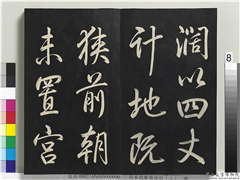 阔以四丈
计地既
狭前朝
未置宫
8